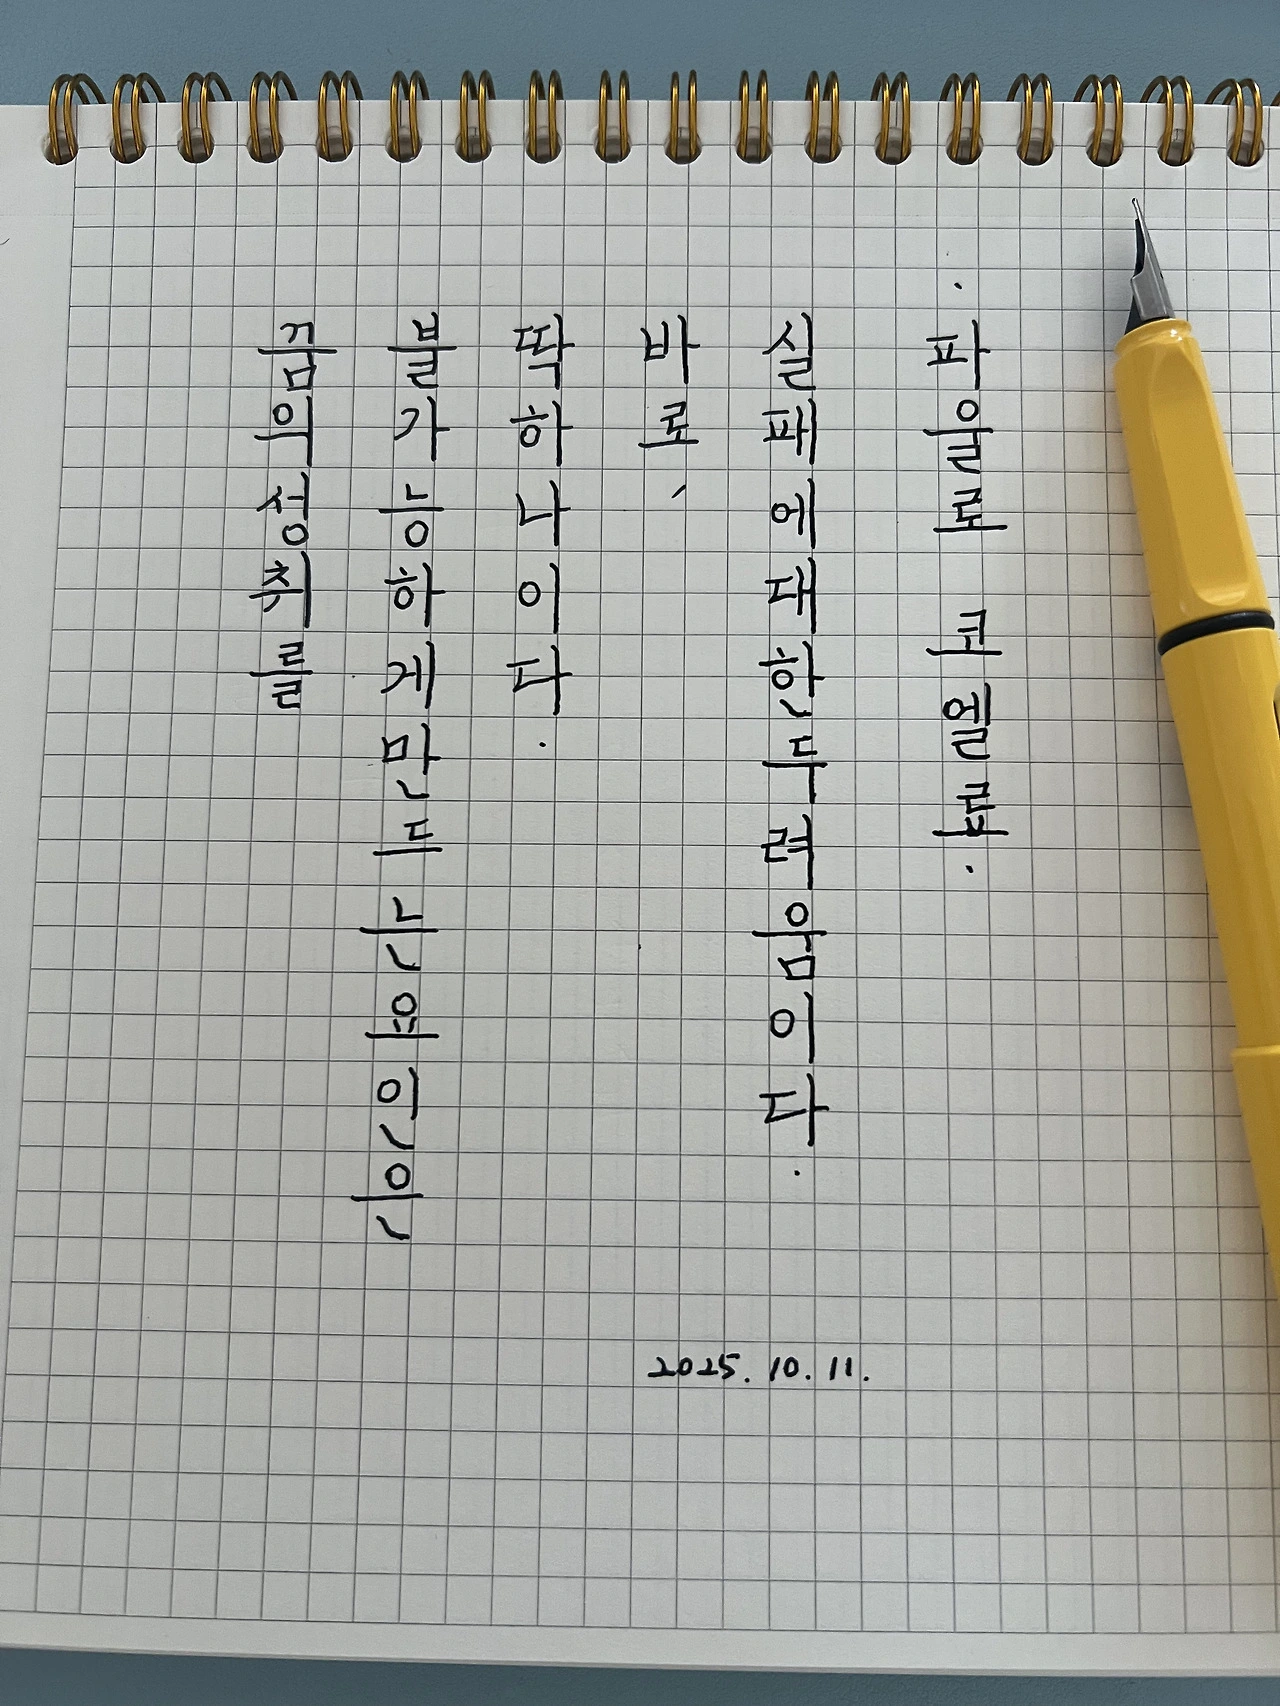 꿈의 성취를
불가능하게 만드는 요인은
딱 하나이다.
바로,
실패에 대한 두려움이다.
· 파울로 코엘료 ·
2025. 10. 11.